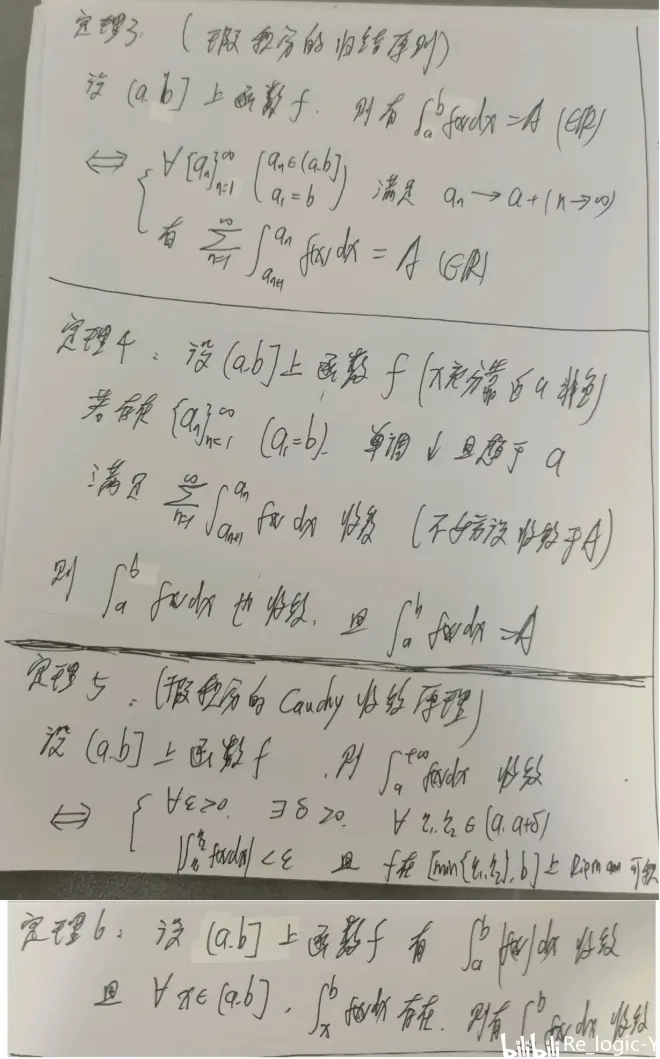 定理3. (瑕积分的归结原则)
设 (a.b] 上函数f. 则有 ∫_a^b f(x)dx = A (∈R)
⟺ { ∀ {a_n}_{n=1}^∞ (a_n∈(a.b] a_1=b) 满足 a_n → a+ (n→∞)
有 ∑_{n=1}^∞ ∫_{a_{n+1}}^{a_n} f(x)dx = A (∈R)
定理4. 设(a.b]上函数f (x充分靠近a非负)
若存在 {a_n}_{n=1}^∞ (a_1=b) 单调↓且趋于a
满足 ∑_{n=1}^∞ ∫_{a_{n+1}}^{a_n} f(x)dx 收敛 (不妨设收敛于A)
则 ∫_a^b f(x)dx 也收敛. 且 ∫_a^b f(x)dx = A
定理5. (瑕积分的Cauchy收敛原理)
设(a.b]上函数f . 则 ∫_a^{+∞} f(x)dx 收敛
⟺ { ∀ε>0. ∃δ>0. ∀ξ_1.ξ_2∈(a.a+δ)
|∫_{ξ_1}^{ξ_2} f(x)dx|<ε 且 f在[min{ξ_1,ξ_2},b]上Riemann可积
定理6. 设(a.b]上函数f 有 ∫_a^b |f(x)|dx 收敛
且 ∀x∈(a.b], ∫_x^b f(x)dx 存在. 则有 ∫_a^b f(x)dx 收敛
bilibili Re_logic-Y